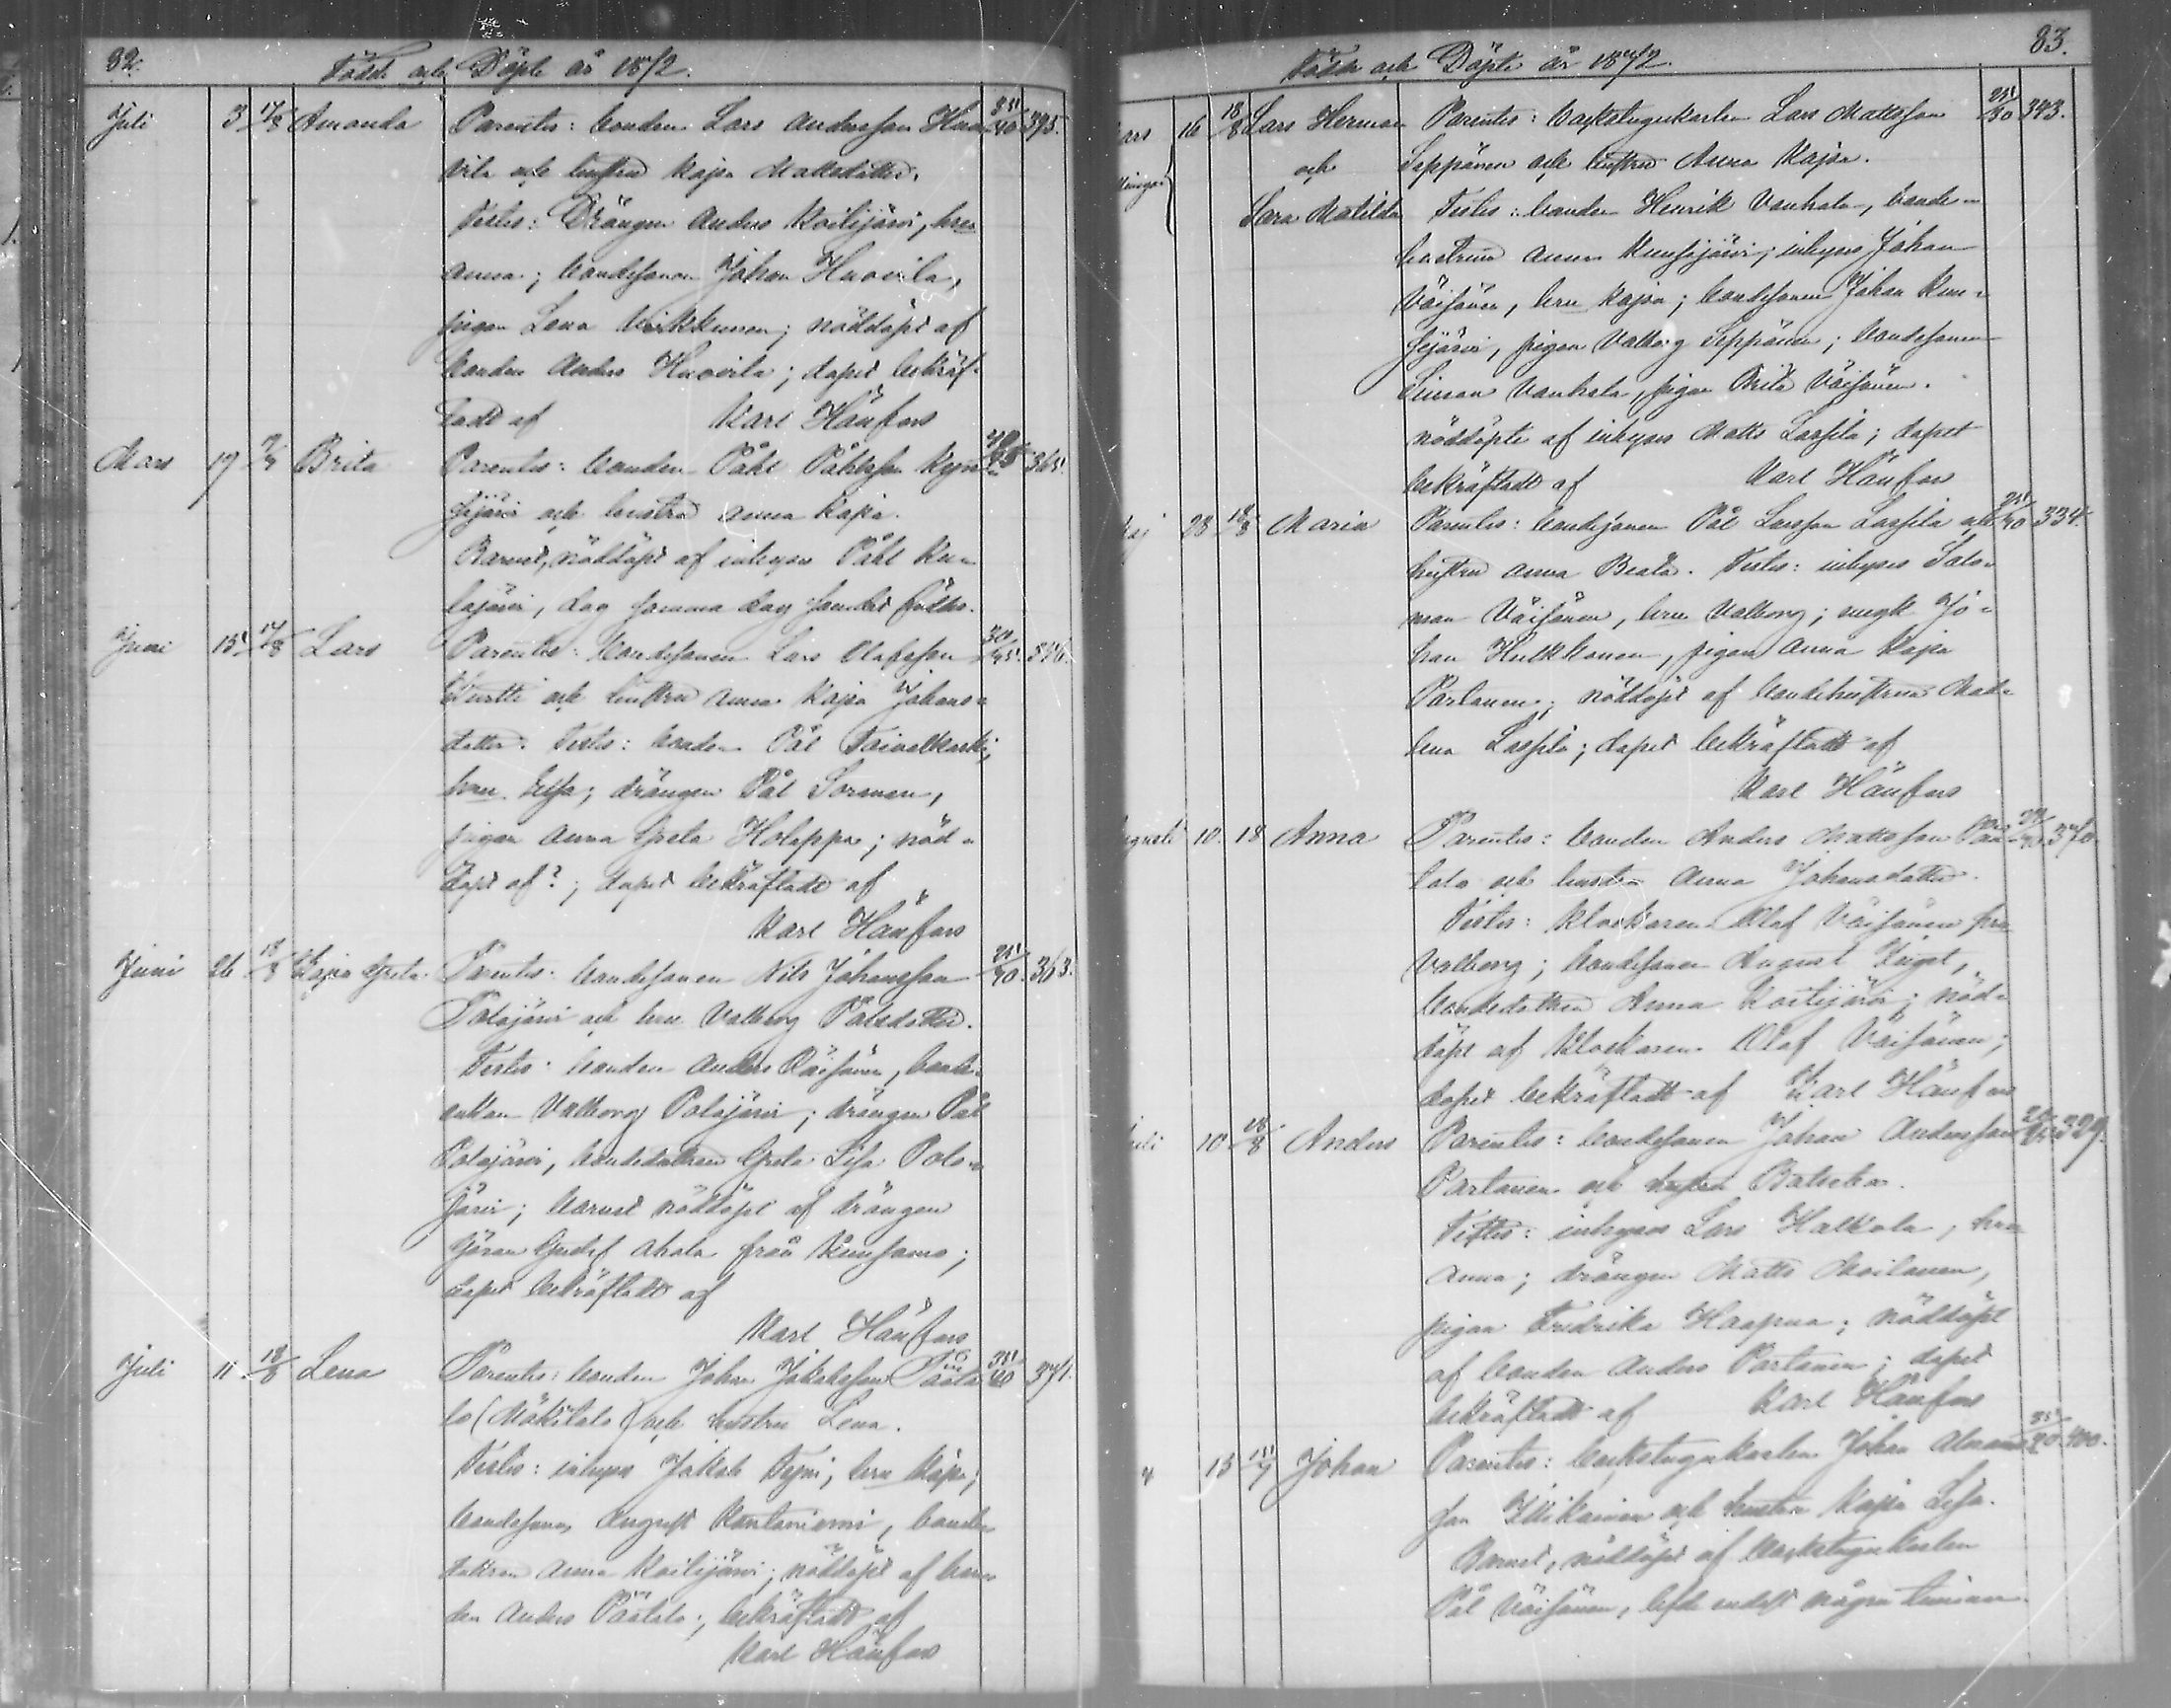 82.
Födde och Döpte år 1872.
Juli 3 17/8 Amanda Parentes: bonden Lars Andersson Huo- 35/40 395.
vila och hustru Kajsa Mattsdotter.
Testes: Drängen Anders Koilijärvi, hru
Anna; bondesonen Johan Huovila,
pigan Lena Heikkinen; nöddöpt af
bonden Anders Huovila; dopet bekräf-
tadt af Karl Hänfors
Mars 17 Brita Parentes: bonden Påhl Påhlsson Kyn- 365.
sijärvi och hustru Anna Kajsa.
Barnet, nöddöpt af inhyses Påhl Ku-
lajärvi, dog samma dag som det föddes.
Juni 15 17/8 Lars Parentes: bondesonen Lars Olofsson 30/35 346.
och hustru Anna Kajsa Johans-
dotter. Testes: bonden Pål Taivalkoski,
hru Lisa; drängen Pål Sormunen,
pigan Anna Greta Holappa; nöd-
döpt af?; dopet bekräftadt af
Karl Hänfors
Juni 26 18/8 Kajsa Greta. Parentes: bondesonen Nils Johansson 25/30. 363.
Polojärvi och hru Valborg Pålsdotter.
Testes: bonden Anders Räisänen, bond-
enkan Valborg Polojärvi; drängen Pål
Polojärvi, bondedottren Greta Lisa Polo-
järvi; barnet nöddöpt af drängen
Göran Gustaf Ahola från Kuusamo;
dopet bekräftadt af
Karl Hänfors
Juli 11 18/8 Lena Parentes: bonden Johan Jakobsson Pääta- 35/40 371.
lo (Mäkitalo) och hustru Lena.
Testes: inhyses Jakob Tyni, hru Kajsa;
bondesonen August Kantoniemi, bonde-
dottren Anna Koilijärvi; nöddöpt af bon-
den Anders Päätalo; bekräftadt af
Karl Hänfors
83.
Födde och Döpte år 1872.
16 18/8 Lars Herman Parentes: backstugukarlen Lars Mattsson 25/30 343.
och Seppänen och hustru Anna Kajsa.
Sara Matilda Testes: bonden Henrik Vanhala, bonde-
hustrun Anna Kunsijärvi; inhyses Johan
Väisänen, hru Kajsa; bondesonen Johan Kun-
sijärvi, pigan Valborg Seppänen; bondesonen
Simon Vanhala, pigan Brita Väisänen.
nöddöpte af inhyses Matts Lassila; dopet
bekräftadt af Karl Hänfors
28 18/8 Maria Parentes: bondesonen Pål Larsson Lassila och 25/30 334.
hustru Anna Beata. Testes: inhyses Salo-
mon Väisänen, hru Valborg; Jo-
han Hulkkonen, pigan Anna Kajsa
Partanen; nöddöpt af bondehustrun Mad-
lena Lassila; dopet bekräftadt af
Karl Hänfors
10. 18 Anna Parentes: bonden Anders Mattsson Pää- 370
talo och hustru Anna Johansdotter.
Testes: Klockaren Olof Väisänen hru
Valborg; bondesonen August Kuget,
bondedottren Anna Koilijärvi; nöd-
döpt af Klockaren Olof Väisänen;
dopet bekräftadt af Karl Hänfors
10. 18/8 Anders Parentes: bondesonen Johan Andersson 329.
Partanen och hustru Batseba.
Testes: inhyses Lars Halkola, hru
Anna; drängen Matts Moilanen,
pigan Fredrika Haapua; nöddöpt
af bonden Anders Partanen; dopet
bekräftadt af Karl Hänfors
13 Johan Parentes: backstugukarlen Johan Abrams- 400.
son Illikainen och hustru Kajsa Lisa.
Barnet, nöddöpt af backstugukarlen
Pål Väisänen, lefde endast några timmar.